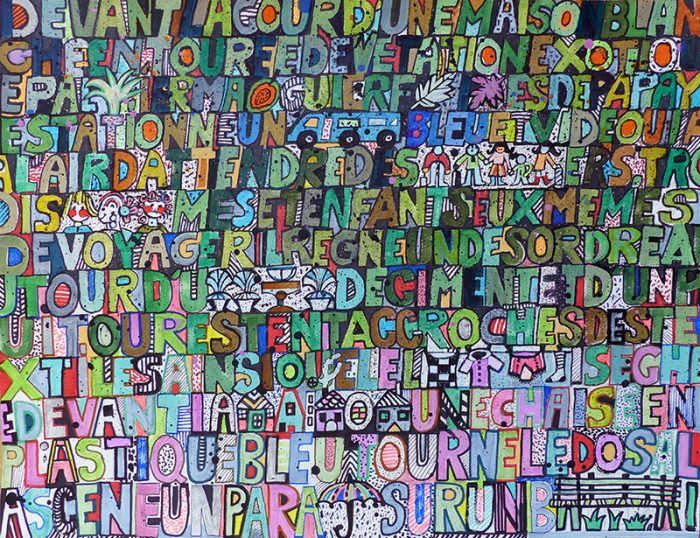 DEVANT LA COUR D UNE MAISO BLAN
CHE ENTOUREE DE VE TATION EXOTIQ
E PA ES DE PAPAY
ESTATIONNE UN BLEU ET VIDE QUI A
A LAIR DATTENDRE DES ERS, TR
DIS MES ET ENFANTS EUX MEMES
DE VOYAGER IL REGNE UN DESORDRE A
UTOUR DU DE CIMENT ET D UN P
UIT OU RESTENT ACCROCHES DES TE
XTILES AINSI QUE LE L
E DEVANT LA OU UNE CHAISE EN
PLASTIQUE BLEU TOURNE LE DOS A L
A SCENE UN PARA SUR UN B